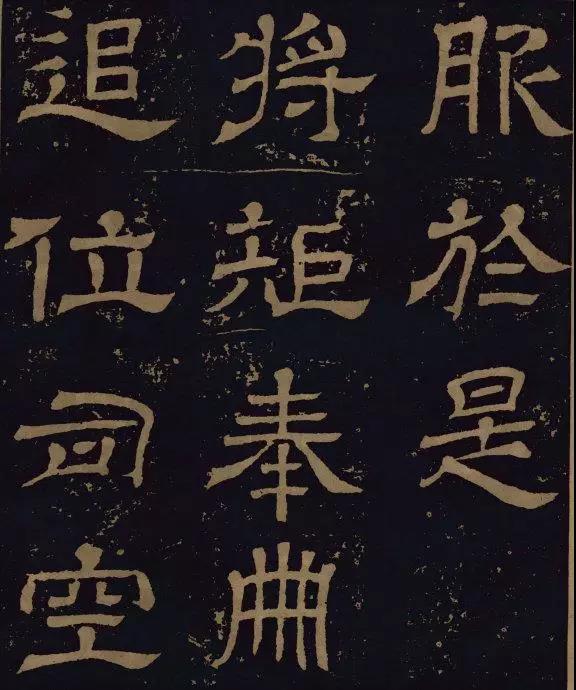 服於是
將矩奉典
追位司空